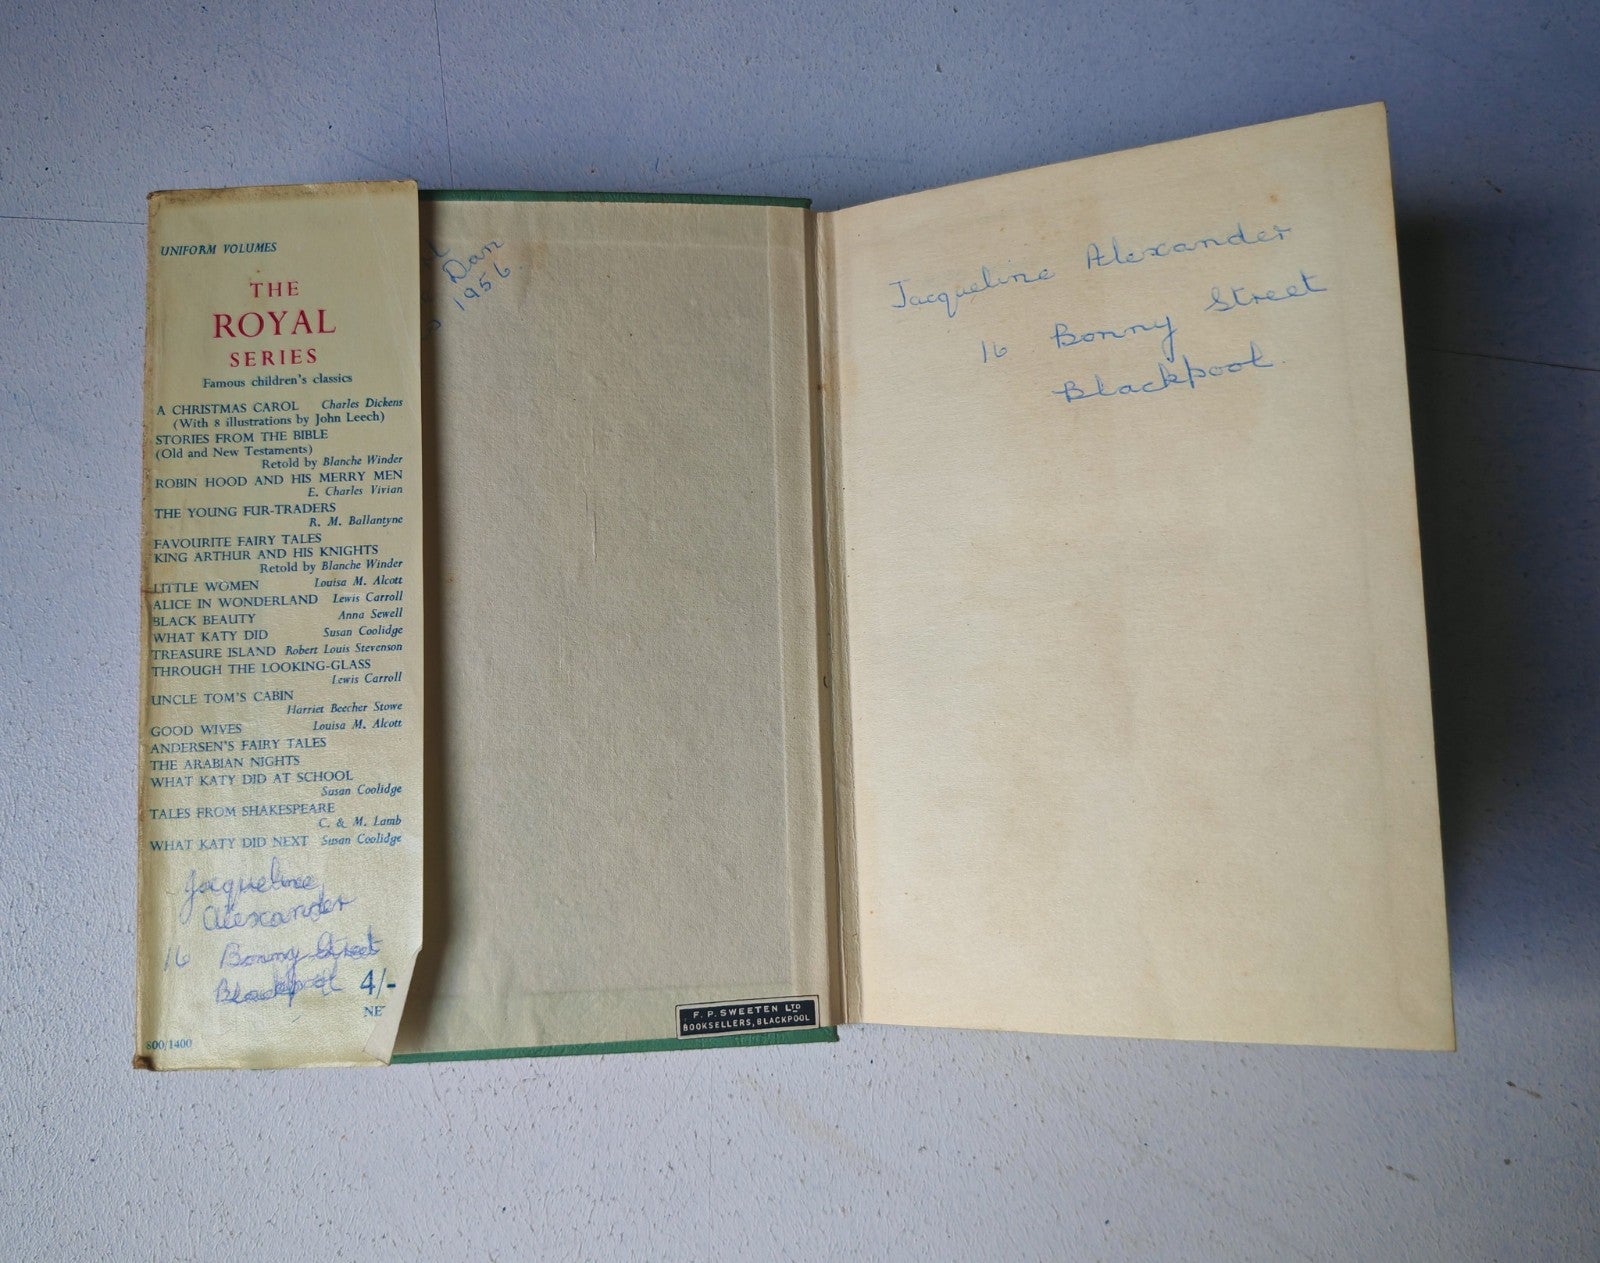 UNIFORM VOLUMES
THE
ROYAL
SERIES
Famous children's classics
A CHRISTMAS CAROL Charles Dickens
(With 8 illustrations by John Leech)
STORIES FROM THE BIBLE
(Old and New Testaments)
Retold by Blanche Winder
ROBIN HOOD AND HIS MERRY MEN
E. Charles Vivian
THE YOUNG FUR-TRADERS
R. M. Ballantyne
FAVOURITE FAIRY TALES
KING ARTHUR AND HIS KNIGHTS
Retold by Blanche Winder
LITTLE WOMEN Louisa M. Alcott
ALICE IN WONDERLAND Lewis Carroll
BLACK BEAUTY Anna Sewell
WHAT KATY DID Susan Coolidge
TREASURE ISLAND Robert Louis Stevenson
THROUGH THE LOOKING-GLASS
Lewis Carroll
UNCLE TOM'S CABIN
Harriet Beecher Stowe
GOOD WIVES Louisa M. Alcott
ANDERSEN'S FAIRY TALES
THE ARABIAN NIGHTS
WHAT KATY DID AT SCHOOL
Susan Coolidge
TALES FROM SHAKESPEARE
C. & M. Lamb
WHAT KATY DID NEXT Susan Coolidge
Jacqueline
Alexander
16 Bonny Street
Blackpool 4/-
NE
800/1400
Dan
1956
F. P. SWEETEN LTD
BOOKSELLERS, BLACKPOOL
Jacqueline Alexander
16 Bonny Street
Blackpool